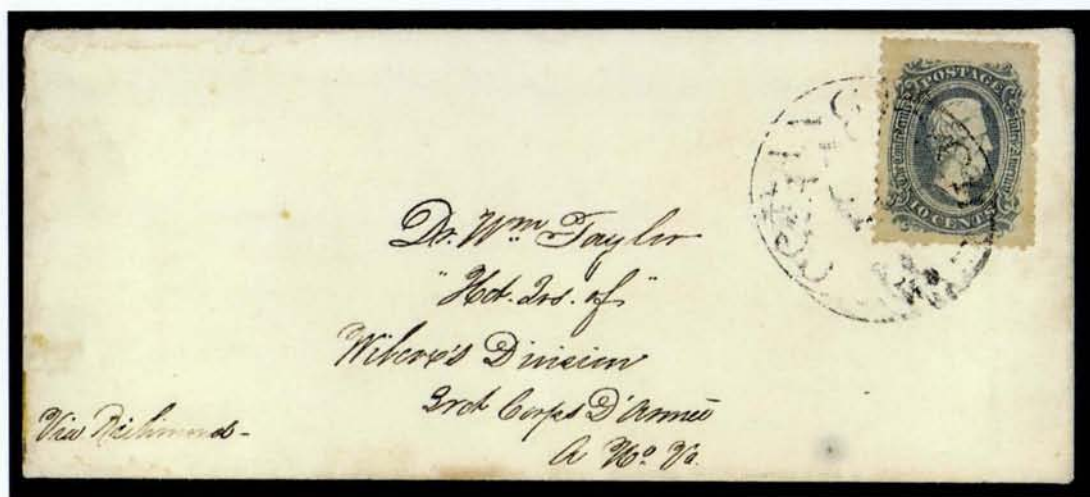 POSTAGE
TEN CENTS
Dr. Wm Taylor
"Hd. Qrs. of"
Wilcox's Division
3rd Corps D'Armée
A No. Va.
Via Richmond-